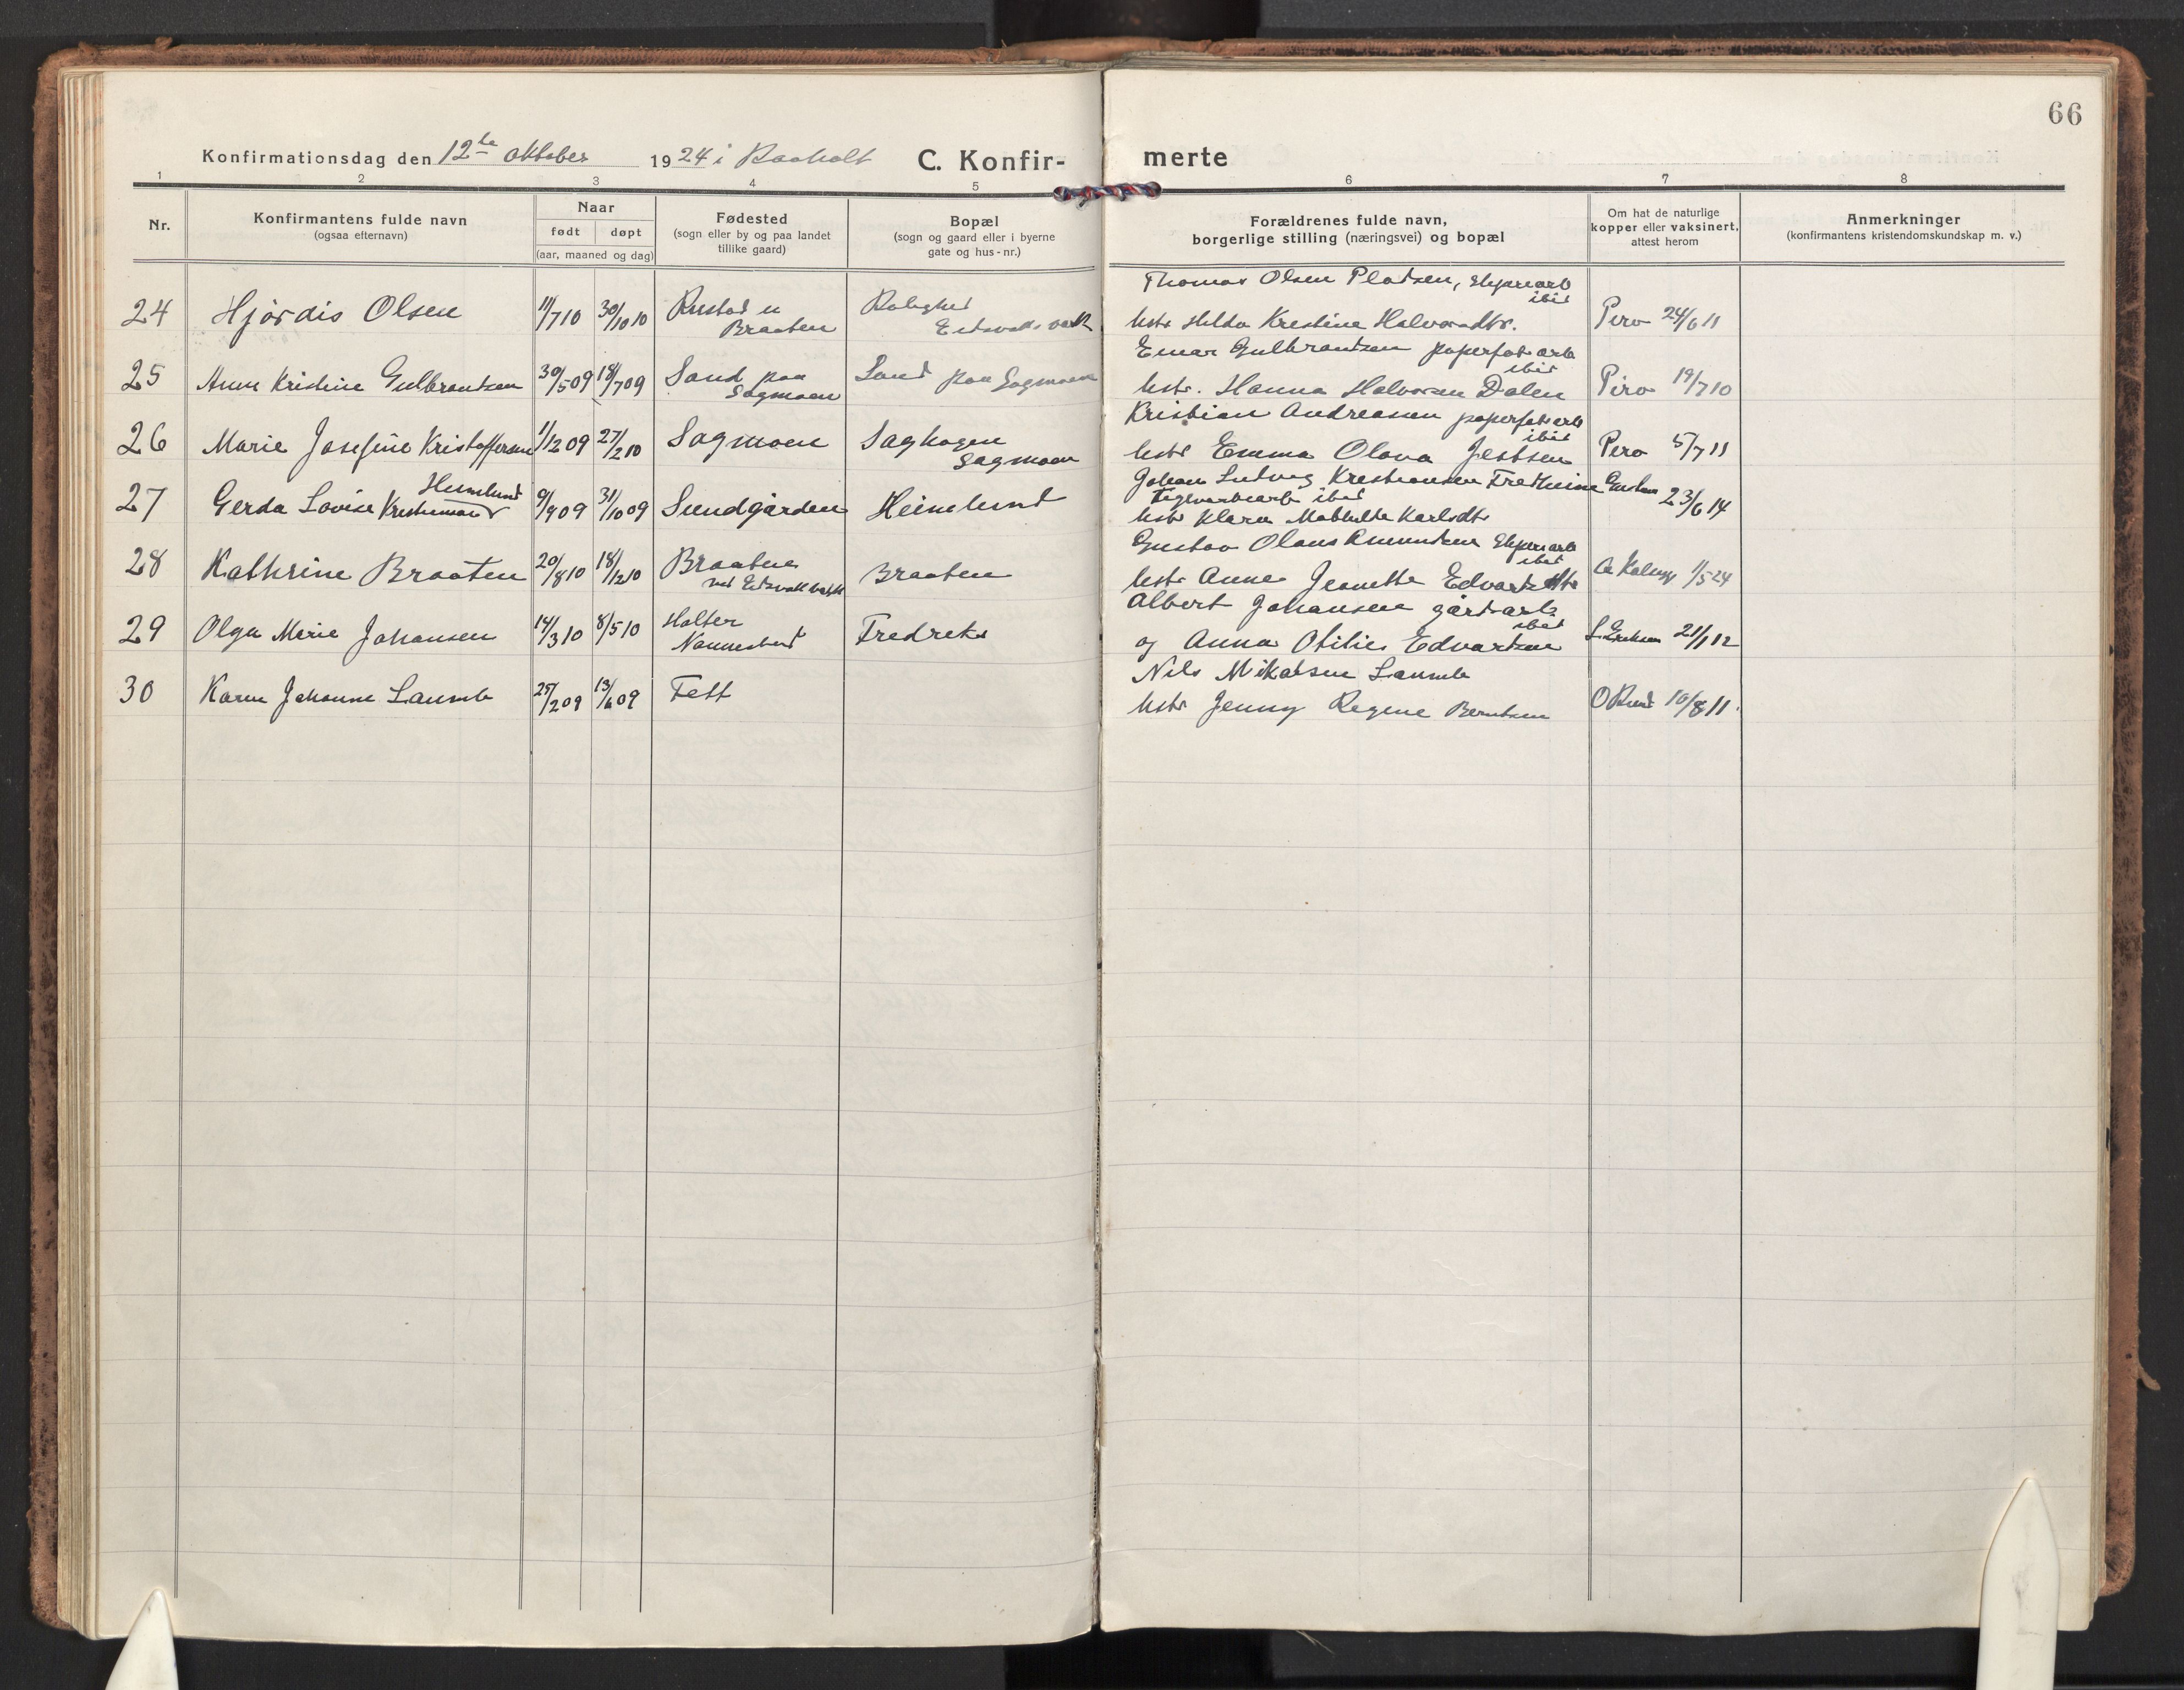 66
Konfirmationsdag den 12te oktober 1924 i Raaholt C. Konfir- merte
1 2 3 4 5 6 7 8
Nr.
Konfirmantens fulde navn
(ogsaa efternavn)
Naar
født døpt
(aar, maaned og dag)
Fødested
(sogn eller by og paa landet
tillike gaard)
Bopæl
(sogn og gaard eller i byerne
gate og hus-nr.)
Forældrenes fulde navn,
borgerlige stilling (næringsvei) og bopæl
Om hat de naturlige
kopper eller vaksinert,
attest herom
Anmerkninger
(konfirmantens kristendomskundskap m. v.)
Thomas Olsen Pladsen,
ibid
24 Hjørdis Olsen 11/7 10 30/10 10 Rustad u
Braaten
Rolighet
Eidsvolls verk
hstr Hilda Kristine Halvorsdtr. Pero 24/6 11
Einar Gulbrantsen papirfab arb
ibid
25 Anne Kristine Gulbrantsen 30/5 09 18/7 09 Sand paa
Sagmoen
Sand paa Sagmoen
hstr. Hanna Halvorsen Dalen Pero 19/7 10
Kristian Andreasen papirfab arb
ibid
26 Marie Josefine Kristoffersen 1/12 09 27/2 10 Sagmoen Saghagen
Sagmoen
hstr Emma Olava Jestsen Pero 5/7 11
Heimlund
27 Gerda Lovise 9/9 09 31/10 09 Sundgården Heimlund
Johan Ludvig Kristiansen 23/6 14
Teglverkarb ibid
hstr Klara Mathilde Karlsdtr
Gustav Olaus Amundsen
ibid
28 Kathrine Braaten 20/8 10 18/12 10 Braaten
ved Eidsvoll verk
Braaten
hstr Anne Jeanette Edvardsdtr 1/5 24
Albert Johansen gårdarb
ibid
29 Olga Marie Johansen 14/3 10 8/5 10 Holter
Nannestad
Fredrek
og Anna Otilie Edvartsen 21/1 12
Nils Mikalsen Laumb
30 Karen Johanne Laumb 25/2 09 13/6 09 Fett
hstr Jenny Regine Berntsen O Rud 10/8 11.